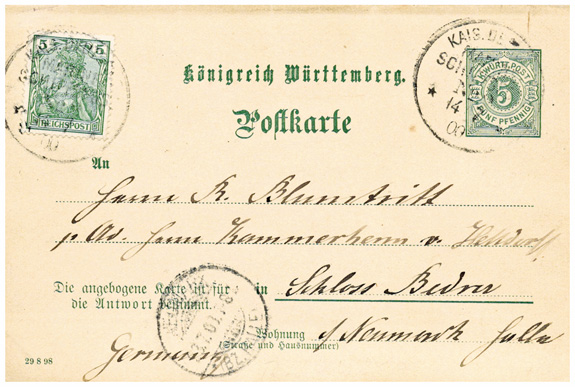 5
REICHSPOST
KAIS. DE
14
00
K. WÜRTT. POST
5
FÜNF PFENNIG
Königreich Württemberg.
Postkarte
An
Herrn R. Blumtritt
p. Ad. Herrn Kammerherrn v. Helldorff
Die angebogene Karte ist für
die Antwort bestimmt.
in Schloss Bedra
Wohnung
(Straße und Hausnummer)
b/ Neumark Halle
Germany
BZ. HALLE
29 8 98